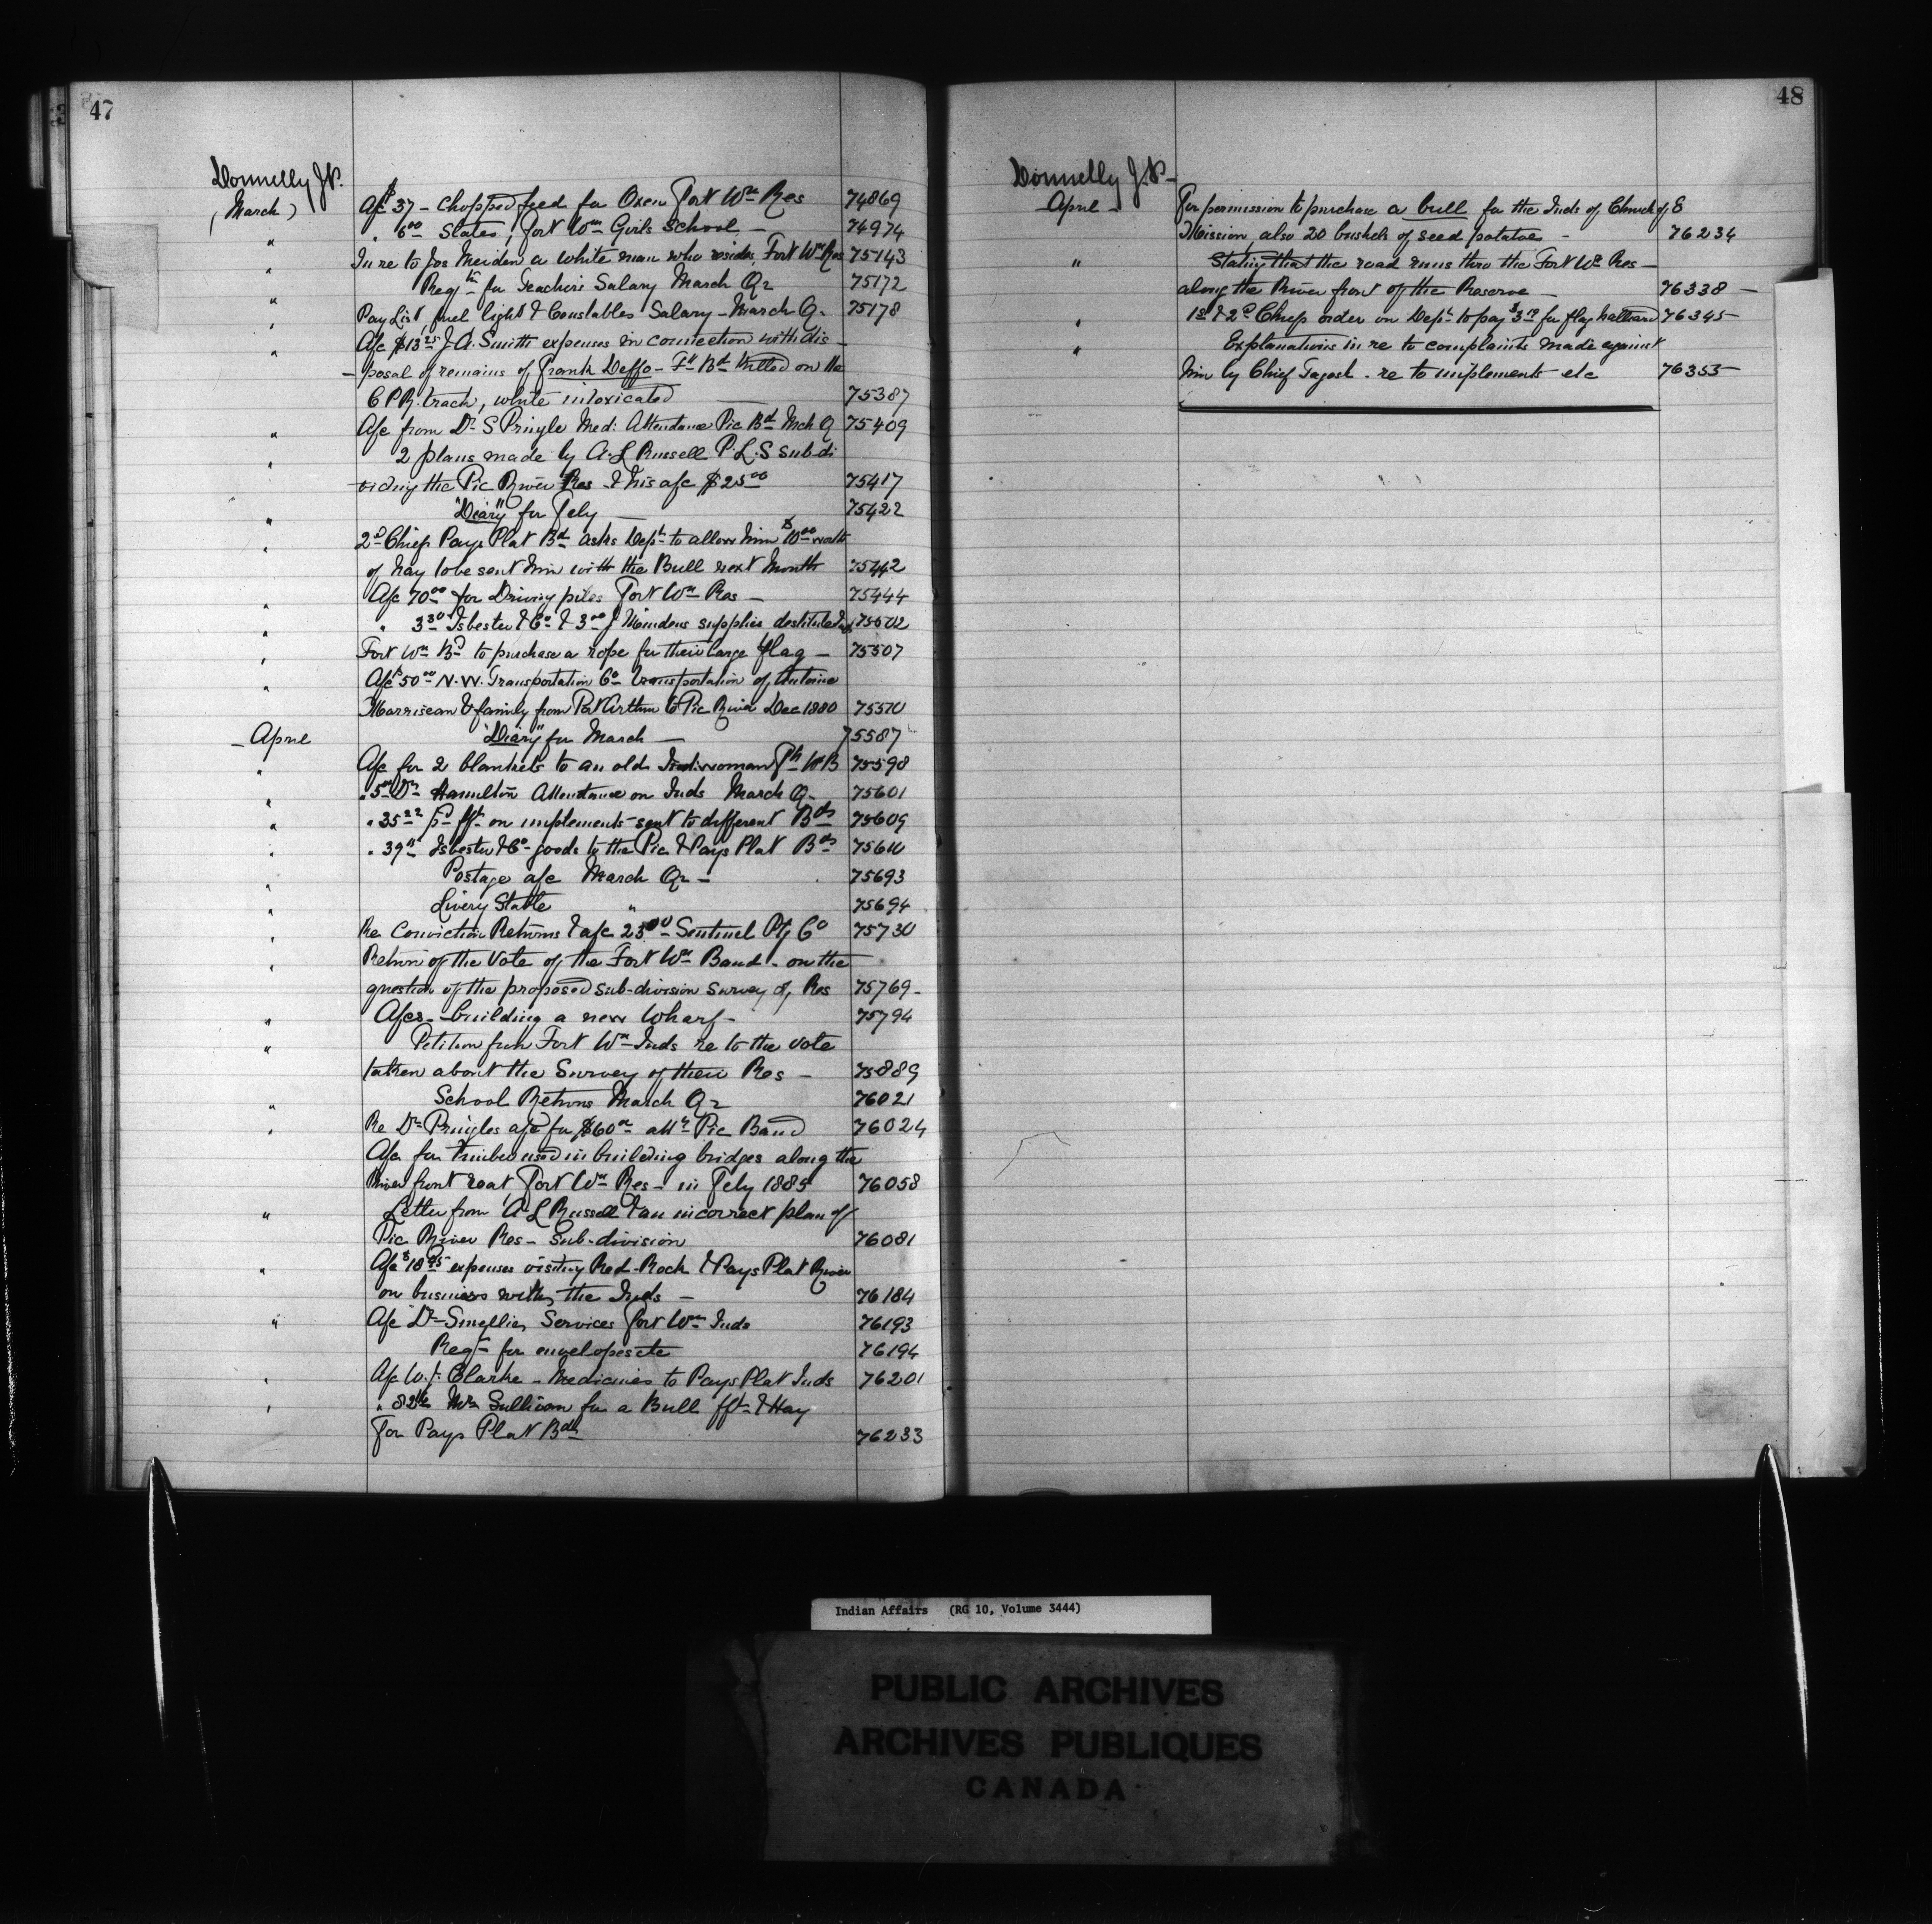 47
Donnelly J.P.
(March) A/c $37 - Chopped feed for Oxen Fort Wm Res 74869
" " 6.00 Slates, Fort Wm Girls School - 74974
" In re to Jos Meiden a white man who resides Fort Wm Res 75143
" Reqtn for Teachers Salary March Qr 75172
" Pay List, fuel light & Constables Salary - March Q. 75178
" A/c $13.25 J. A. Smith expenses in connection with dis-
posal of remains of Frank Deffo - Ft Bd killed on the
C P R. track, while intoxicated 75387
" A/c from Dr S Pringle Med: Attendance Pic Bd Mch Q 75409
" 2 plans made by A. L Russell P. L. S sub-di
viding the Pic River Res & his a/c $25.00 75417
" "Diary" for Feby 75422
" 2d Chief Pays Plat Bd asks Dept to allow him $10.00 worth
of hay to be sent him with the Bull next Month 75442
" A/c 70.00 for Driving piles Fort Wm Res - 75444
" " 3.30 Isbester & Co & 3.00 J Meindens supplies destitute Inds 75502
" Fort Wm Bd to purchase a rope for their large flag - 75507
" A/c $50.00 N. W. Transportation Co transportation of Antoine
Morriseau & family from Port Arthur to Pic River Dec 1880 75570
- April "Diary" for March - 75587
" A/c for 2 blankets to an old Ind. woman Ft W B 75598
" " 5.00 Dr Hamilton Attendance on Inds March Q - 75601
" " 35.22 pd fft on implements sent to different Bds 75609
" " 39 Isbester & Co goods to the Pic & Pays Plat Bds 75610
" Postage a/c March Qr - 75693
" Livery Stable " 75694
" Re Conviction Returns & a/c 23.00 Sentinel Ptg Co 75730
" Return of the Vote of the Fort Wm Band - on the
question of the proposed sub-division survey of Res 75769-
" A/cs - building a new Wharf - 75794
" Petition from Fort Wm Inds re to the vote
taken about the Survey of their Res - 75889
" School Returns March Qr 76021
" Re Dr Pringles a/c for $60.00 attce Pic Band 76024
A/c for timber used in building bridges along the
River front road, Fort Wm Res - in Feby 1885 76058
" Letter from A L Russell & an incorrect plan of
Pic River Res - Sub-division 76081
" A/c $18.95 expenses visiting Red-Rock & Pays Plat River
on business with the Inds - 76184
" A/c Dr Smellie, Services Fort Wm Inds 76193
Reqtn for envelopes etc 76194
" A/c W. J. Clarke - Medicines to Pays Plat Inds 76201
" " 82 Mr Sullivan for a Bull fft & Hay
For Pays Plat Bds 76233
48
Donnelly J. P. -
April - For permission to purchase a bull for the Inds of Church of E
Mission, also 20 bushels of seed potatoe - 76234
" Stating that the road runs thro the Fort Wm Res -
along the River front of the Reserve - 76338 -
" 1st & 2d Chiefs order on Dept to pay $3 for flag halliard 76345-
" Explanations in re to complaints made against
him by Chief Tagosh. re to implements etc 76353-
Indian Affairs (RG 10, Volume 3444)
PUBLIC ARCHIVES
ARCHIVES PUBLIQUES
CANADA